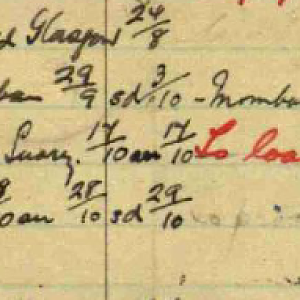 d Glasgow 24/8
ban 29/9 sd 3/10 - Momba
Suez. 17/10 arr 17/10 To loa
8/10 arr 28/10 sd 29/10